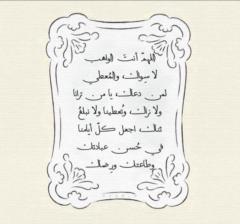 اللهم أنت الواهب
لا سواك والمُعطي
لمن دعاك يا من زلنا
ولا زال وتُعطينا ولا نبلغ
ثناك اجعل كلّ أيامنا
في حُسن عبادتك
وطاعتك ورضاك